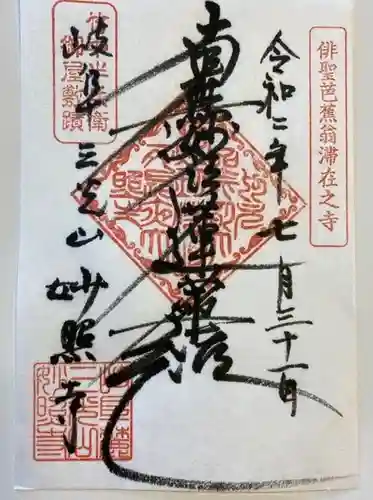 俳聖芭蕉翁滞在之寺
令和二年七月三十一日
南無妙法蓮華経
竹中半兵衛
御屋敷蹟
岐阜十三光山妙照寺